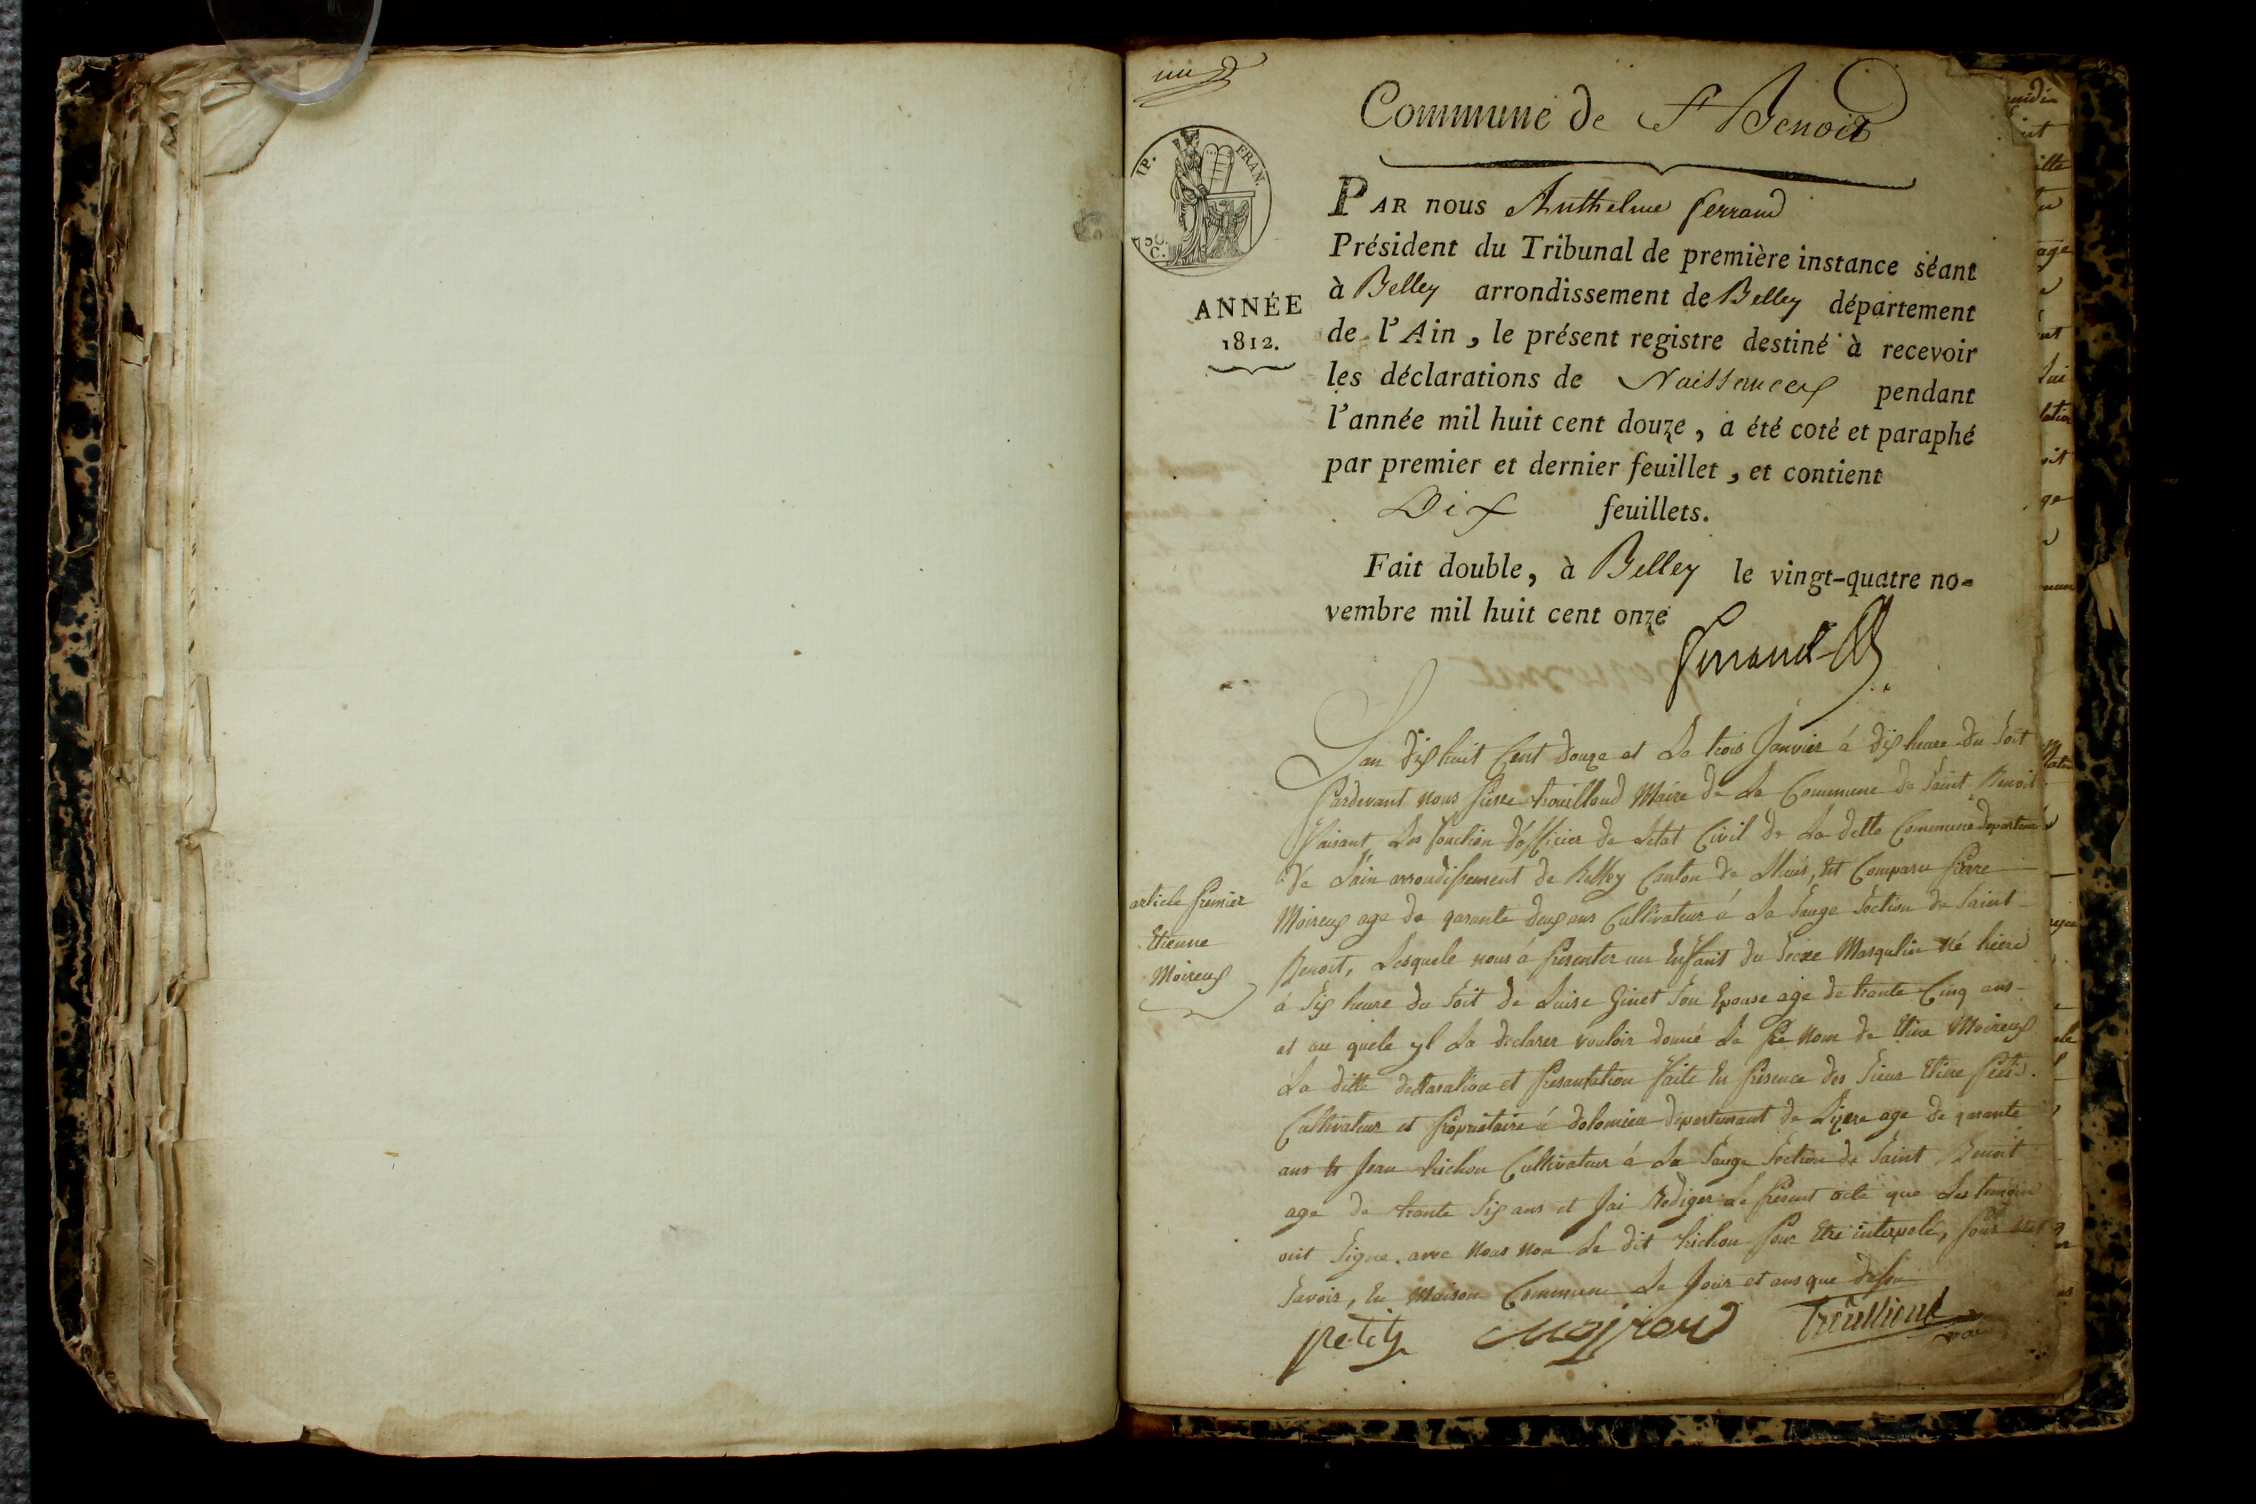 Commune de St Benoit
IP. FRAN.
PAR nous Anthelme ferrand
Président du Tribunal de première instance séant
à Belley arrondissement de Belley département
de l'Ain, le présent registre destiné à recevoir
les déclarations de Naissances pendant
l'année mil huit cent douze, a été coté et paraphé
par premier et dernier feuillet, et contient
Dix feuillets.
Fait double, à Belley le vingt-quatre no-
vembre mil huit cent onze
ANNÉE
1812.
Lan dix huit Cent douze et Le trois Janvier á dix heure du Soit
Pardevant nous Pierre trouilloud Maire de La Commune de Saint Benoit
Faisant Les fonction d'officier de Letat Civil de La ditte Commune departement
de Lain arrondissement de Belley Canton de Lhuis, Et Comparu Pierre
Moireux age de qarante deux ans Cultivateur á La Sauge Section de Saint
Benoit, Lesquele nous á presenter un Enfant du Sexe Masqulin né hiere
á Six heure du Soit de Luise Ginet Son Epouse age de trante Cinq ans
et au quele yl La declarer vouloir donné Le Pre nom de Etine Moireux
La ditte dellaration et presantation faite En presence des Sieur Etine Petit.
Cultivateur et Propriétaire á dolomieu departement de Lizere age de qarante
ans Et Jean hichon Cultivateur á La Sauge Section de Saint Benoit
age de trante Six ans et Jai Rediger Le present acte que Les temoin
ont Signe. avec nous non Le dit hichon pour Etre interpelé,
Savoir, En Maison Commune Le Jour et ans que dessu
article Premier
Etienne
Moireux
petit Moiroud Trouilloud